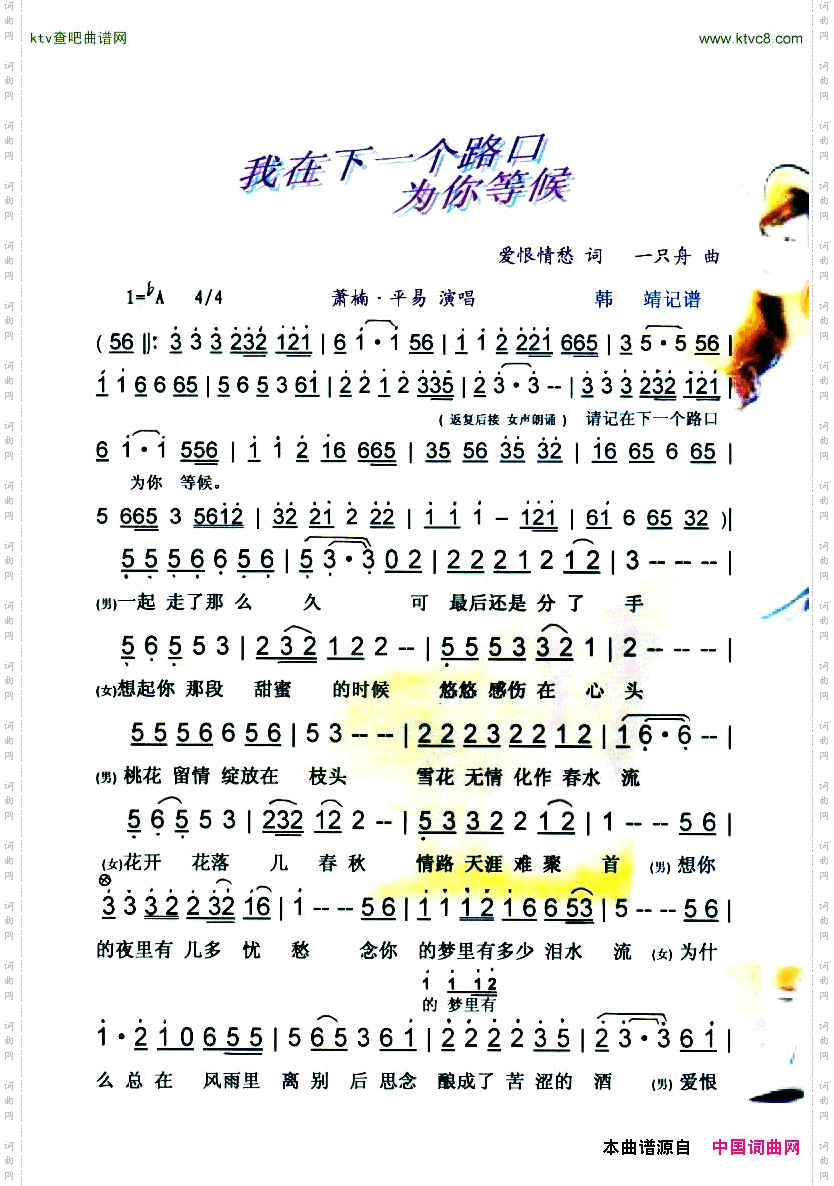 ktv查吧曲谱网 www.ktvc8.com
我在下一个路口
为你等候
爱恨情愁 词 一只舟 曲
1=♭A 4/4 萧楠·平易 演唱 韩 靖记谱
( 56 |: 3 3 3 232 121 | 6 1·1 56 | 1 1 2 221 665 | 3 5·5 56 |
1 1 6 6 65 | 5 6 5 3 61 | 2 2 1 2 335 | 2 3·3 -- | 3 3 3 232 121 |
( 返复后接 女声朗诵 ) 请记在下一个路口
6 1·1 556 | 1 1 2 16 665 | 35 56 35 32 | 16 65 6 60 |
为你 等候。
5 665 3 5612 | 32 21 2 22 | 1 1 1 - 121 | 61 6 65 32 )|
5 5 5 6 6 5 6 | 5 3·3 0 2 | 2 2 2 1 2 12 | 3 -- -- |
(男)一起 走了那 么 久 可 最后还是 分 了 手
5 6 5 5 3 | 2 32 12 2 -- | 5 5 5 3 32 1 | 2 -- -- |
(女)想起你 那段 甜蜜 的时候 悠悠 感伤 在 心 头
5 5 5 6 6 5 6 | 5 3 -- -- | 2 2 2 3 2 2 12 | 1 6·6 -- |
(男) 桃花 留情 绽放在 枝头 雪花 无情 化作 春水 流
5 6 5 5 3 | 232 12 2 -- | 5 3 3 2 2 12 | 1 -- 5 6 |
(女)花开 花落 几 春 秋 情路 天涯 难 聚 首 (男) 想你
3 3 3 2 2 32 16 | 1 -- 5 6 | 1 1 12 1 6 6 53 | 5 -- 5 6 |
的夜里有 几多 忧 愁 念你 的梦里有多少 泪水 流 (女) 为什
1 1 12
的 梦里有
1·2 1 0 6 5 5 | 5 65 3 6 1 | 2 2 2 2 3 5 | 2 3·3 6 1 |
么 总 在 风雨里 离 别 后 思念 酿成了 苦 涩的 酒 (男) 爱恨
本曲谱源自 中国词曲网